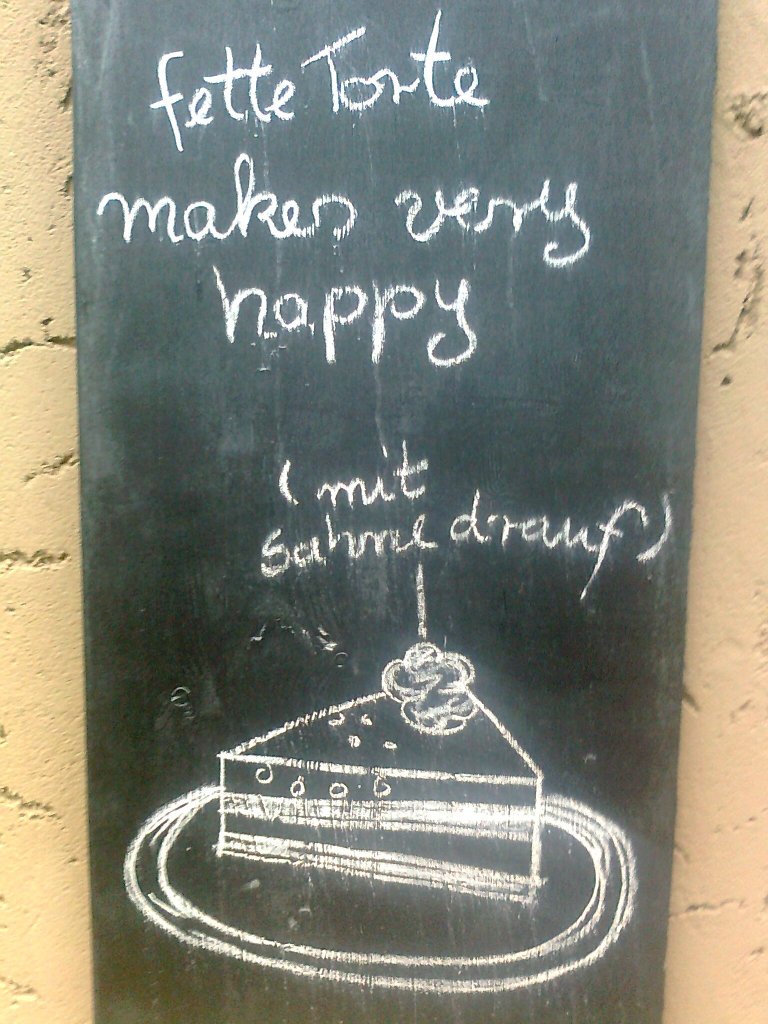 fette Torte
makes very
happy
(mit
Sahne drauf)